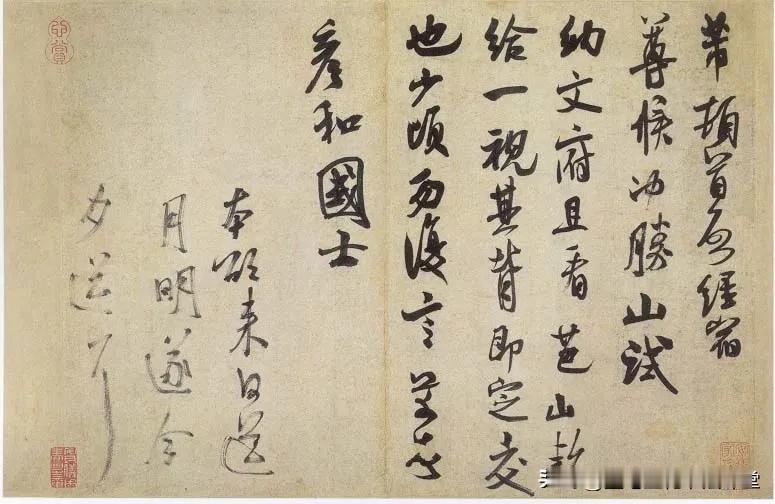 芾頓首启經宿
尊候冲勝山試
納文府且看芭山款
給一視其背即定交
也少頃勿復言芾頓
彦和國士
本欲来日送
月明遂今
夕送耳